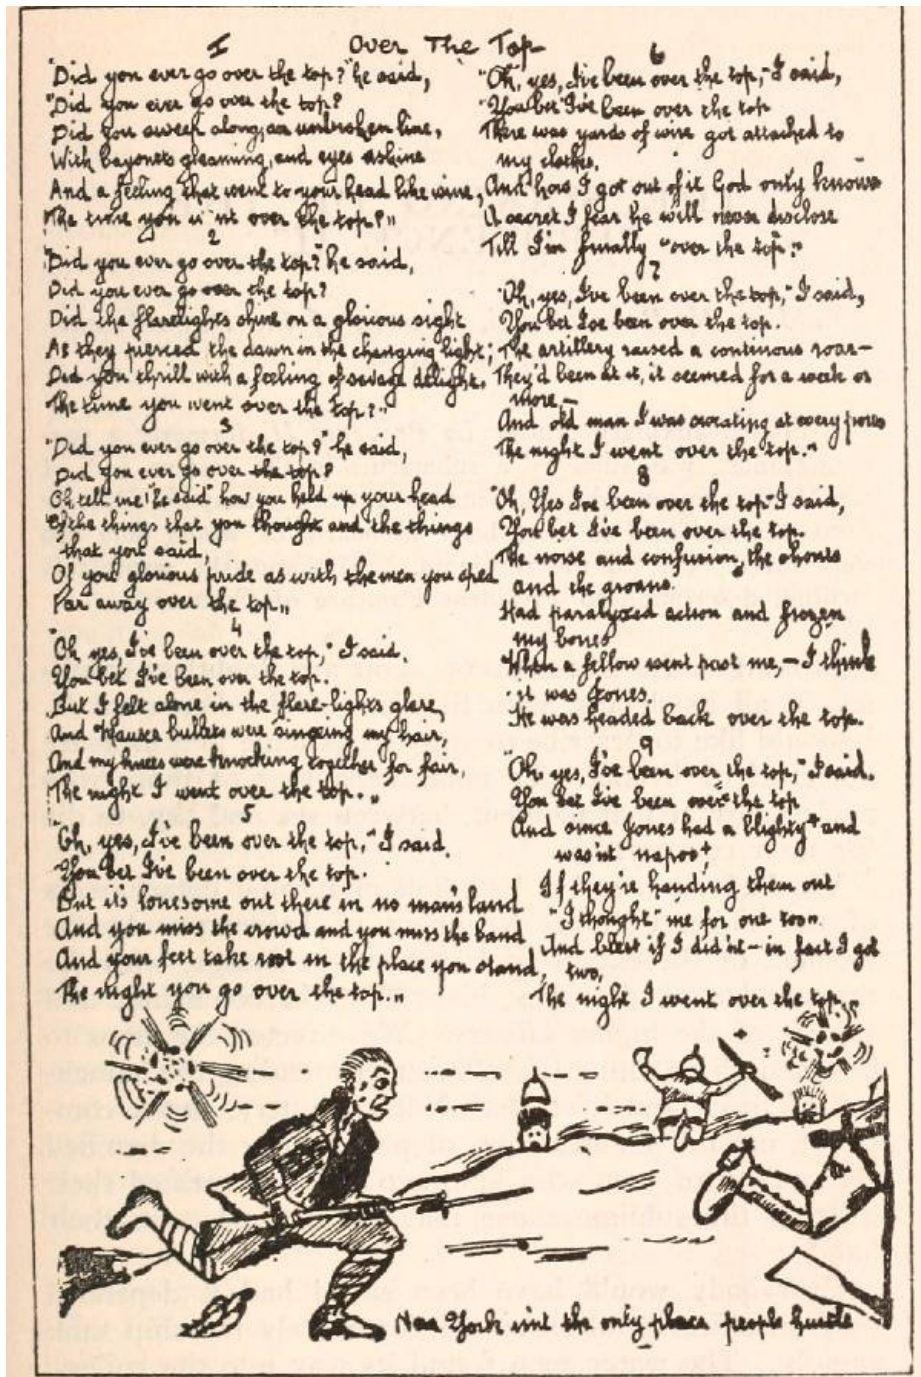 Over The Top
1
"Did you ever go over the top?" he said,
"Did you ever go over the top?
Did you sweep along, an unbroken line,
With bayonets gleaming, and eyes ashine
And a feeling that went to your head like wine,
The time you w nt over the top?"
2
"Did you ever go over the top?" he said,
Did you ever go over the top?
Did the flarelights shine on a glorious sight
As they pierced the dawn in the changing light;
Did you thrill with a feeling of savage delight,
The time you went over the top?"
3
"Did you ever go over the top?" he said,
Did you ever go over the top?
Oh, tell me! "he said" how you held up your head
Of the things that you thought and the things
that you said,
Of your glorious pride as with the men you sped
Far away over the top"
4
"Oh yes, I've been over the top," I said.
You bet I've been over the top.
But I felt alone in the flare-lights glare,
And Mauser bullets were singeing my hair,
And my knees were knocking together for fair,
The night I went over the top."
5
"Oh, yes, I've been over the top," I said.
You bet I've been over the top.
But it's lonesome out there in no man's land
And you miss the crowd and you miss the band
And your feet take root in the place you stand,
The night you go over the top."
6
"Oh, yes, I've been over the top," I said,
"You bet I've been over the top
There was yards of wire got attached to
my clothes,
And how I got out of it God only knows
A secret I fear he will never disclose
Till I'm finally "over the top."
7
"Oh, yes, I've been over the top," I said,
You bet I've been over the top.
The artillery raised a continous roar—
They'd been at it, it seemed for a week or
more,—
And old man I was sweating at every pore
The night I went over the top."
8
"Oh, Yes I've been over the top" I said,
You bet I've been over the top.
The noise and confusion, the shouts
and the groans.
Had paralyzed action and frozen
my bones
When a fellow went past me,— I think
it was Jones.
He was headed back over the top.
9
"Oh, yes, I've been over the top," I said.
You bet I've been over the top
And since Jones had a blighty+ and
was'nt napoo+,
If they're handing them out
"I thought" me for one too".
And blest if I did'nt — in fact I got
two,
The night I went over the top."
New York isnt the only place people hustle